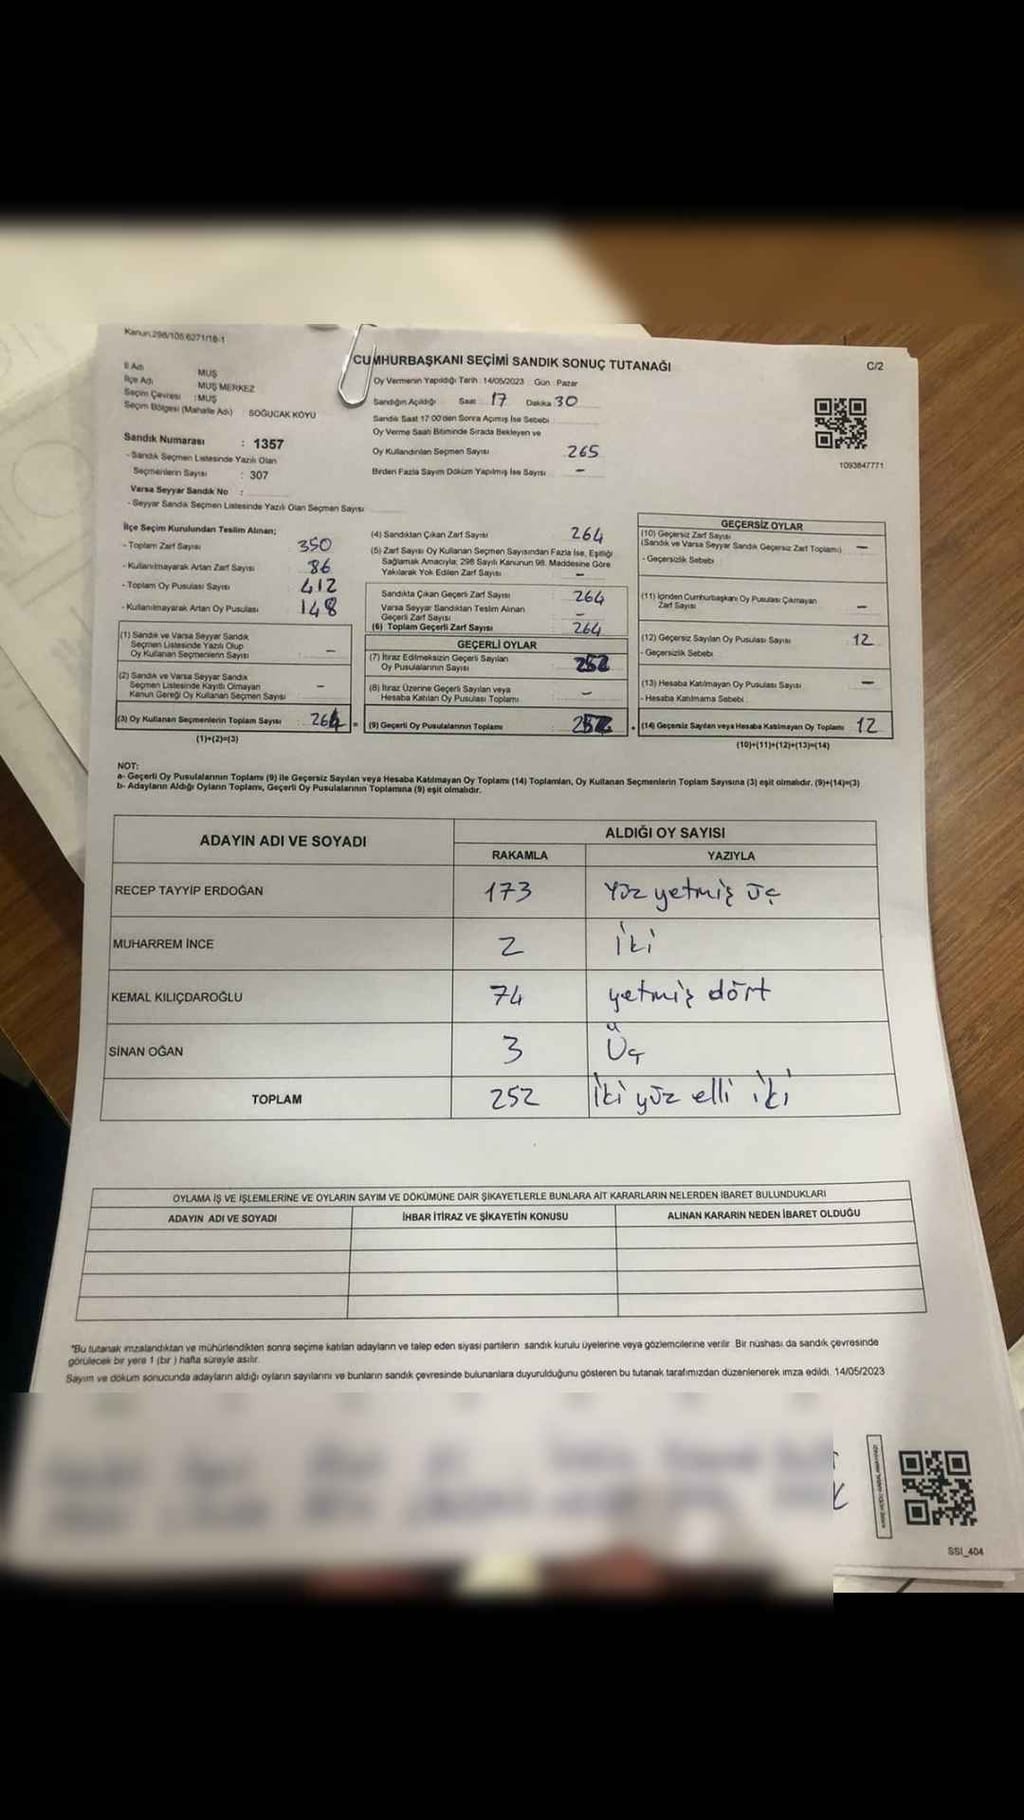 Kanun:298/105;6271/18-1
CUMHURBAŞKANI SEÇİMİ SANDIK SONUÇ TUTANAĞI
C/2
İl Adı MUŞ
İlçe Adı MUŞ MERKEZ
Seçim Çevresi : MUŞ
Seçim Bölgesi (Mahalle Adı) : SOĞUCAK KOYU
Oy Vermenin Yapıldığı Tarih : 14/05/2023 Gün : Pazar
Sandığın Açıldığı Saat 17 Dakika 30
Sandık Saat 17:00'den Sonra Açımış İse Sebebi
Oy Verme Saati Bitiminde Sırada Bekleyen ve
Oy Kullandırılan Seçmen Sayısı 265
Birden Fazla Sayım Döküm Yapılmış İse Sayısı -
1093847771
Sandık Numarası : 1357
- Sandık Seçmen Listesinde Yazılı Olan
Seçmenlerin Sayısı : 307
Varsa Seyyar Sandık No :
- Seyyar Sandık Seçmen Listesinde Yazılı Olan Seçmen Sayısı
İlçe Seçim Kurulundan Teslim Alınan;
- Toplam Zarf Sayısı 350
- Kullanılmayarak Artan Zarf Sayısı 86
- Toplam Oy Pusulası Sayısı 412
- Kullanılmayarak Artan Oy Pusulası 148
(1) Sandık ve Varsa Seyyar Sandık
Seçmen Listesinde Yazılı Olup
Oy Kullanan Seçmenlerin Sayısı -
(2) Sandık ve Varsa Seyyar Sandık
Seçmen Listesinde Kayıtlı Olmayan
Kanun Gereği Oy Kullanan Seçmen Sayısı -
(3) Oy Kullanan Seçmenlerin Toplam Sayısı 264 =
(1)+(2)=(3)
(4) Sandıktan Çıkan Zarf Sayısı 264
(5) Zarf Sayısı Oy Kullanan Seçmen Sayısından Fazla İse, Eşitliği
Sağlamak Amacıyla; 298 Sayılı Kanunun 98. Maddesine Göre
Yakılarak Yok Edilen Zarf Sayısı -
Sandıkta Çıkan Geçerli Zarf Sayısı 264
Varsa Seyyar Sandıktan Teslim Alınan
Geçerli Zarf Sayısı -
(6) Toplam Geçerli Zarf Sayısı 264
GEÇERLİ OYLAR
(7) İtiraz Edilmeksizin Geçerli Sayılan
Oy Pusulalarının Sayısı 252
(8) İtiraz Üzerine Geçerli Sayılan veya
Hesaba Katılan Oy Pusulası Toplamı -
(9) Geçerli Oy Pusulalarının Toplamı 252 +
GEÇERSİZ OYLAR
(10) Geçersiz Zarf Sayısı
(Sandık ve Varsa Seyyar Sandık Geçersiz Zarf Toplamı) -
- Geçersizlik Sebebi
(11) İçinden Cumhurbaşkanı Oy Pusulası Çıkmayan
Zarf Sayısı -
(12) Geçersiz Sayılan Oy Pusulası Sayısı 12
- Geçersizlik Sebebi
(13) Hesaba Katılmayan Oy Pusulası Sayısı -
- Hesaba Katılmama Sebebi
(14) Geçersiz Sayılan veya Hesaba Katılmayan Oy Toplamı 12
(10)+(11)+(12)+(13)=(14)
NOT:
a- Geçerli Oy Pusulalarının Toplamı (9) ile Geçersiz Sayılan veya Hesaba Katılmayan Oy Toplamı (14) Toplamları, Oy Kullanan Seçmenlerin Toplam Sayısına (3) eşit olmalıdır. (9)+(14)=(3)
b- Adayların Aldığı Oyların Toplamı, Geçerli Oy Pusulalarının Toplamına (9) eşit olmalıdır.
ADAYIN ADI VE SOYADI
ALDIĞI OY SAYISI
RAKAMLA YAZIYLA
RECEP TAYYİP ERDOĞAN 173 Yüz yetmiş üç
MUHARREM İNCE 2 iki
KEMAL KILIÇDAROĞLU 74 yetmiş dört
SİNAN OĞAN 3 Üç
TOPLAM 252 İki yüz elli iki
OYLAMA İŞ VE İŞLEMLERİNE VE OYLARIN SAYIM VE DÖKÜMÜNE DAİR ŞİKAYETLERLE BUNLARA AİT KARARLARIN NELERDEN İBARET BULUNDUKLARI
ADAYIN ADI VE SOYADI İHBAR İTİRAZ VE ŞİKAYETİN KONUSU ALINAN KARARIN NEDEN İBARET OLDUĞU
"Bu tutanak imzalandıktan ve mühürlendikten sonra seçime katılan adayların ve talep eden siyasi partilerin sandık kurulu üyelerine veya gözlemcilerine verilir. Bir nüshası da sandık çevresinde
görülecek bir yere 1 (bir ) hafta süreyle asılır.
Sayım ve döküm sonucunda adayların aldığı oyların sayılarını ve bunların sandık çevresinde bulunanlara duyurulduğunu gösteren bu tutanak tarafımızdan düzenlenerek imza edildi. 14/05/2023
SSI_404